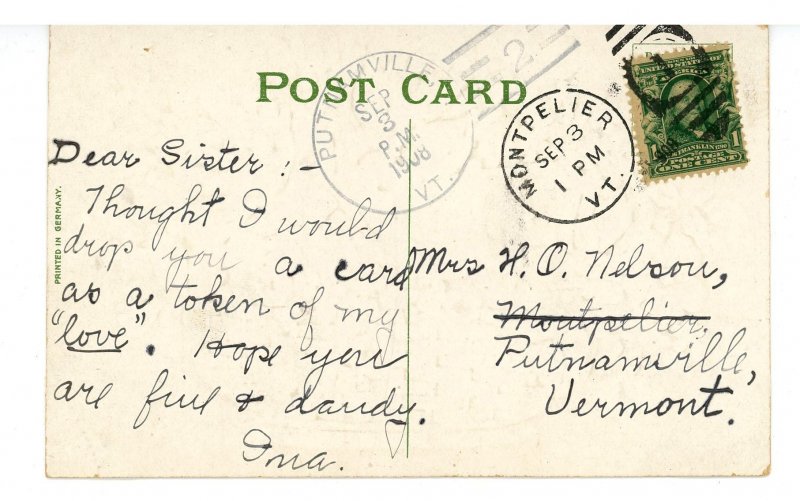 POST CARD
PUTNAMVILLE
SEP
3
P.M.
1908
VT.
2
MONTPELIER
SEP 3
1 PM
VT.
FRANKLIN
POSTAGE
ONE CENT
PRINTED IN GERMANY.
Dear Sister :-
Thought I would
drop you a card
as a token of my
"love". Hope you
are fine & dandy.
Ina.
Mrs H. O. Nelson,
Montpelier.
Putnamville,
Vermont.